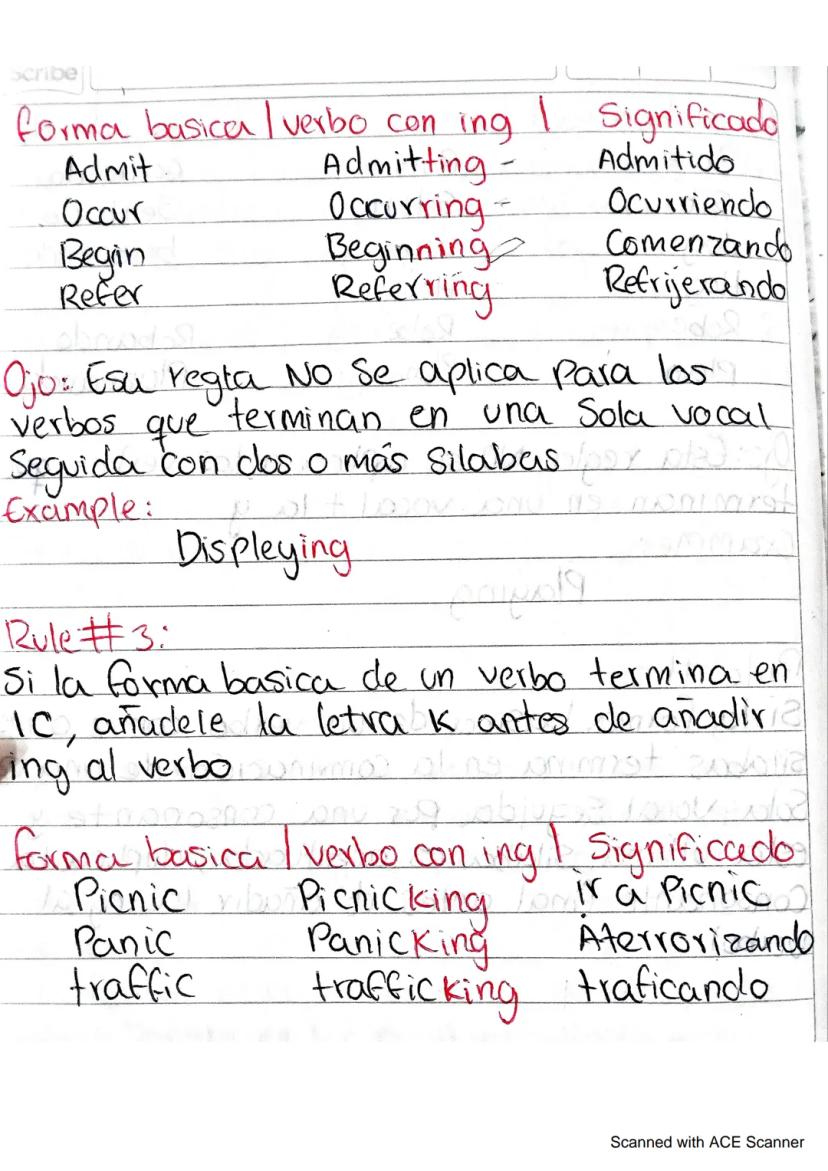 scribe
forma basica | verbo con ing | Significado
Admit Admitting - Admitido
Occur Occurring - Ocurriendo
Begin Beginning Comenzando
Refer Referring Refrijerando
Ojo: Esu regta NO Se aplica Para los
verbos que terminan en una Sola vocal
Seguida con dos o más silabas
Example:
Displeying
Rule # 3:
Si la forma basica de un verbo termina en
IC, añadele la letra K antes de añadir
ing al verbo
forma basica | verbo con ing | Significado
Picnic Picnicking ir a Picnic
Panic Panicking Aterrorizando
traffic trafficking traficando
Scanned with ACE Scanner